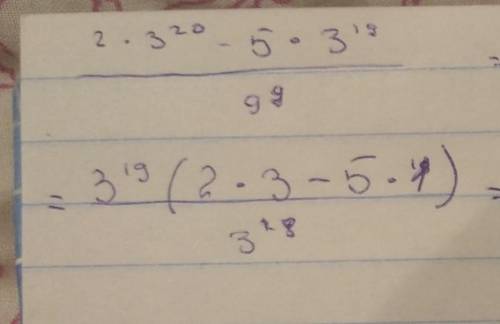 2 · 3²⁰ - 5 · 3¹⁹ =
9⁹
= 3¹⁹ ( 2 · 3 - 5 · 1 ) =
3¹⁸